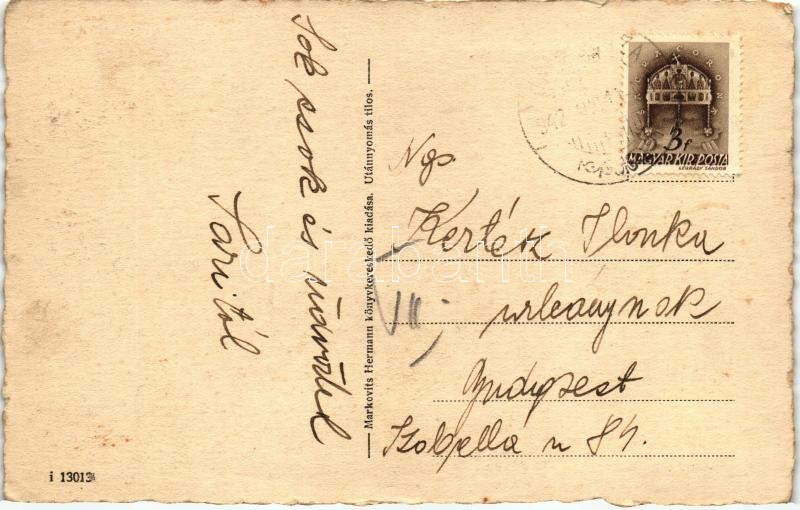 Sok csók és üdvözlet
Saritól
Markovits Hermann könyvkereskedő kiadása. Utánnyomás tilos.
i 13013
SACRA CORONA
3f
MAGYAR KIR POSTA
LÉGRÁDY SÁNDOR
942
Ngs.
Kerték Ilonka
urleánynak
VII.
Budapest
Izabella u 84.
darabanth